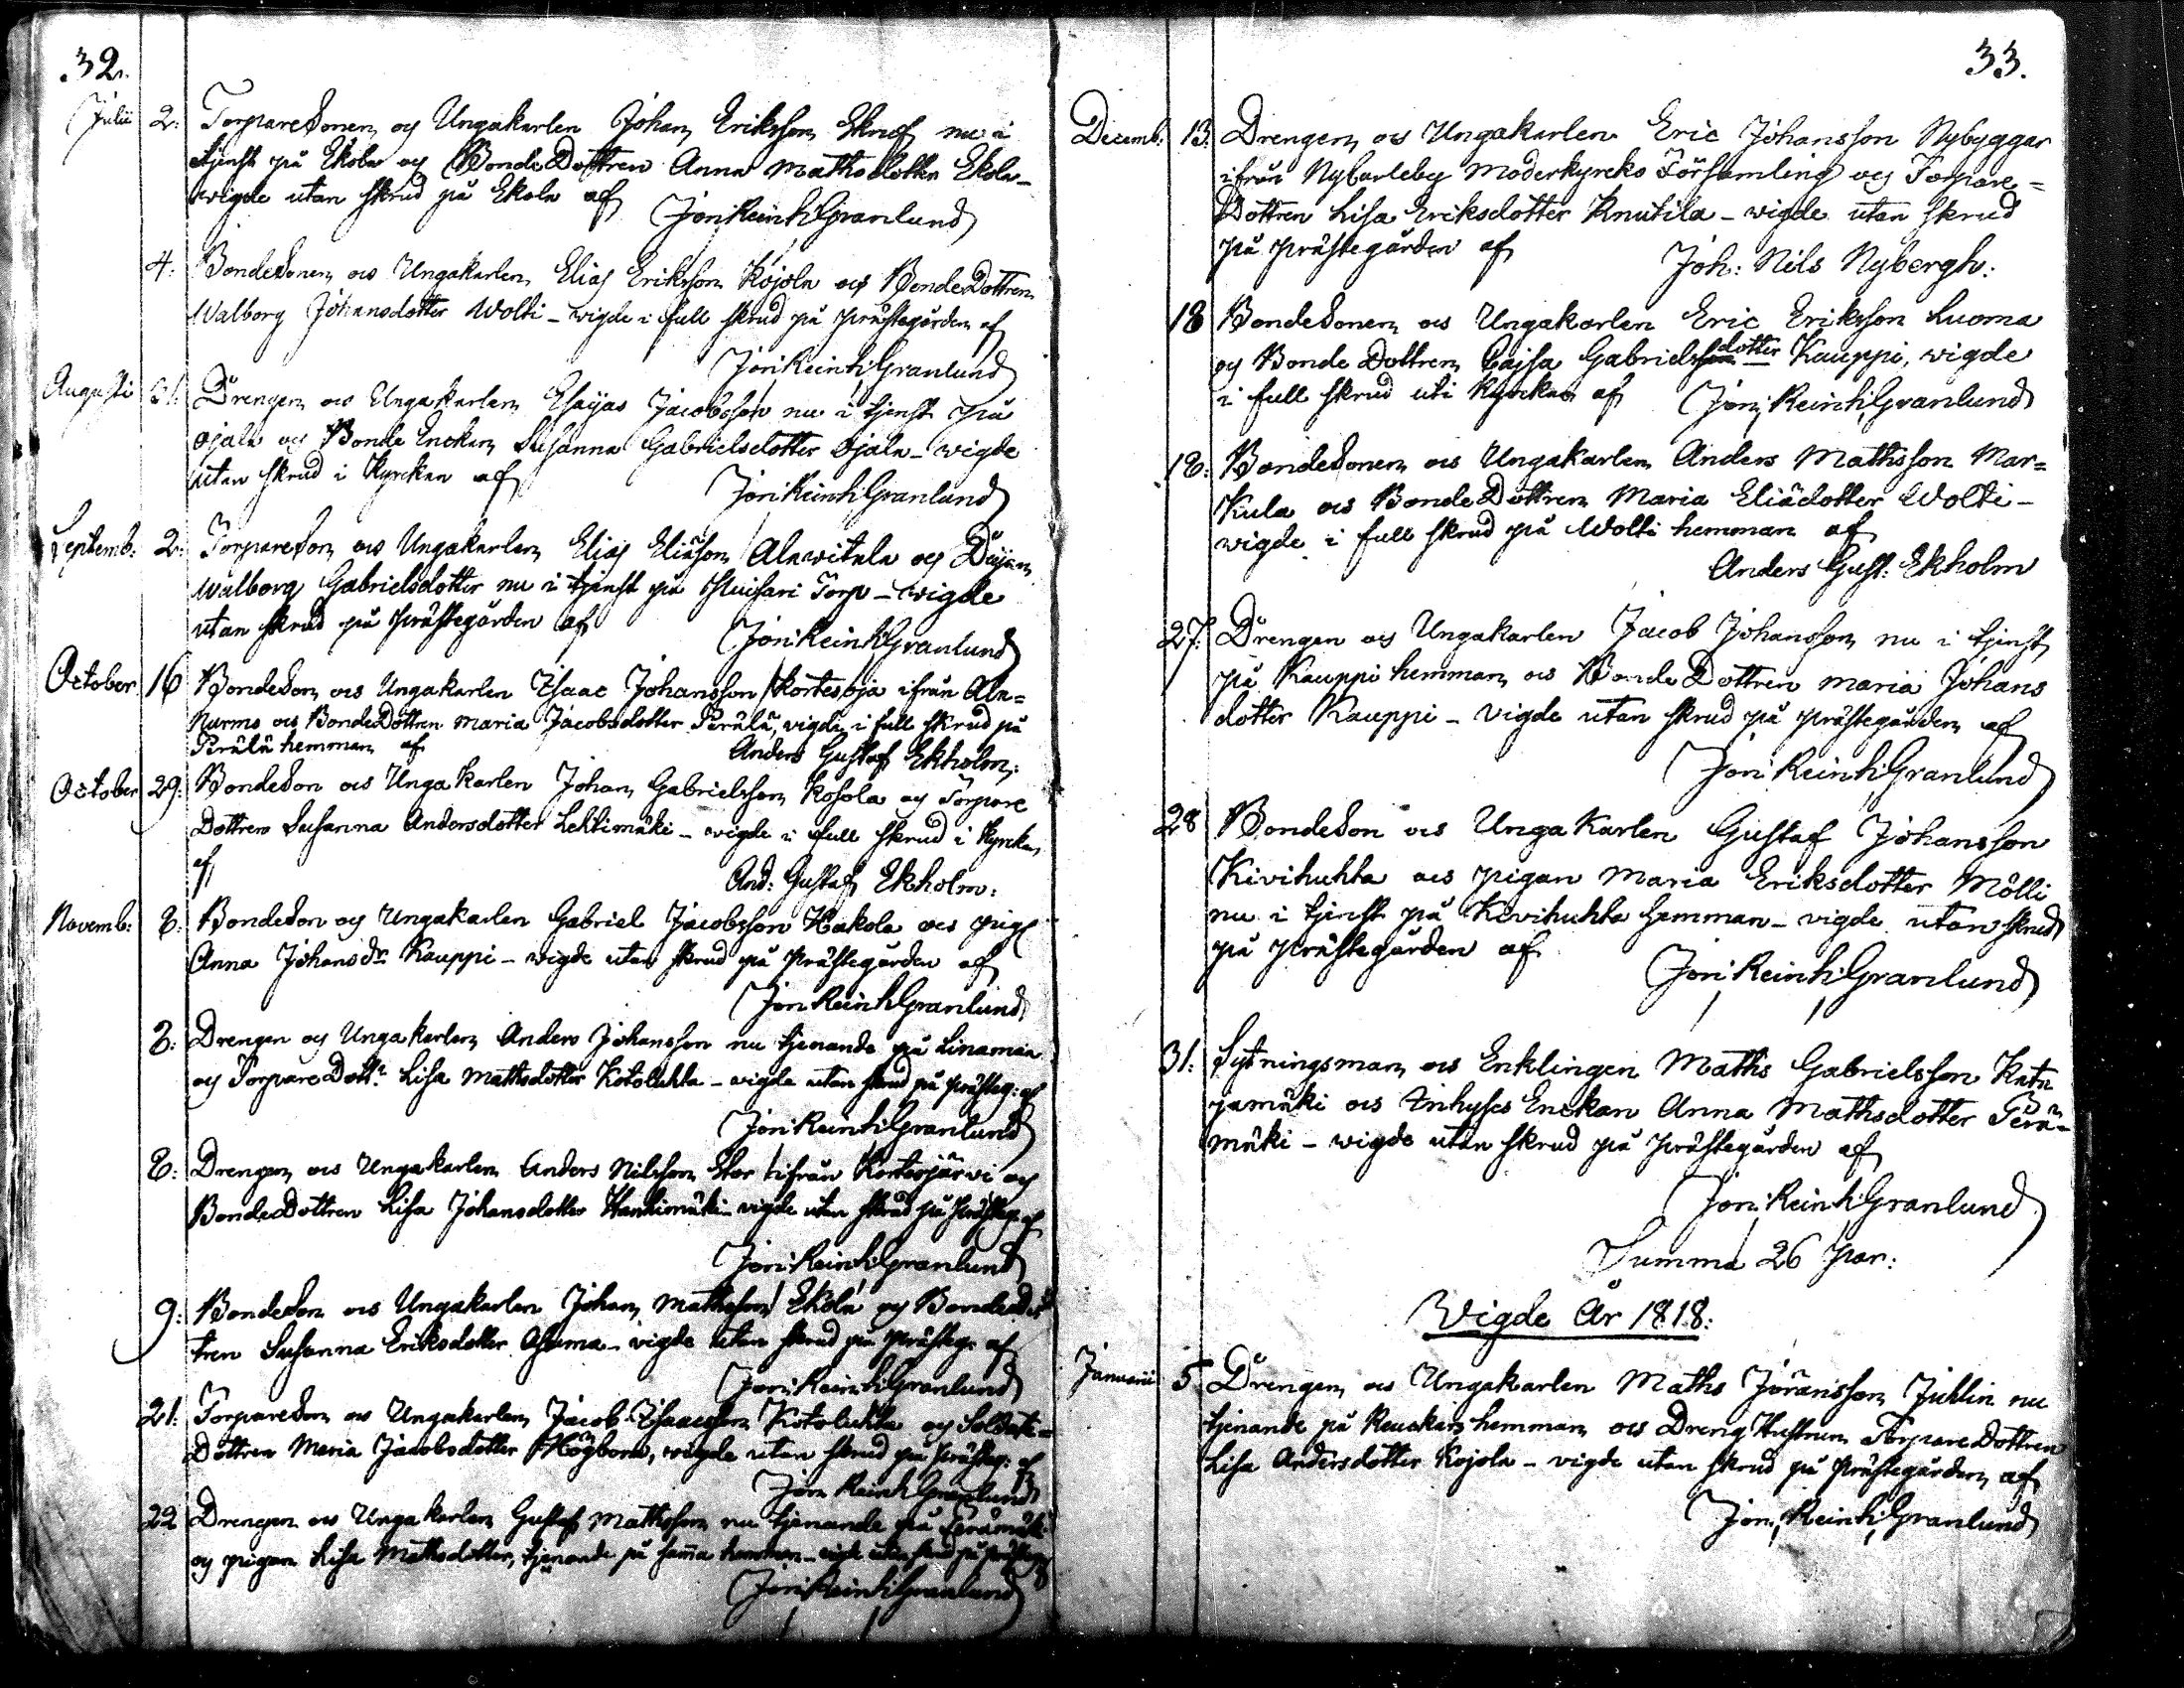 32.
Julii 2: TorpareSonen og Ungakarlen Johan Eriksson Eknof nu i
tjenst på Ekola og BondeDottren Anna Mathsdotter Ekola -
wigde utan skrud på Ekola af Jon: Reinh: Granlund
4: BondeSonen os Ungakarlen Elias Eriksson Kojola os BondeDottren
Walborg Johansdotter Wolti - wigde i full skrud på Prästegården af
Jon: Reinh: Granlund
Augusti 31. Drengen os Ungakarlen Esaijas Jacobsson nu i tjenst på
Ojala og Bonde Enckan Susanna Gabrielsdotter Ojala - wigde
utan skrud i Kyrckan af Jon: Reinh: Granlund
Septemb: 2: TorpareSon os Ungakarlen Elias Eliäson Alawitala og Pigan
Walborg Gabrielsdotter nu i tjenst på Huisari Torp - wigde
utan skrud på Prästegården af Jon: Reinh: Granlund
October 16 BondeSon os Ungakarlen Isaac Johansson Kortesoja ifrån Ala=
Nurmo os BondeDottren Maria Jacobsdotter Perälä, vigde i full skrud på
Perälä hemman af Anders Gustaf Ekholm:
October 29: BondeSon os Ungakarlen Johan Gabrielsson Kosola og Torpare
Dottren Susanna Andersdotter Lehtimäki - wigde i full skrud i Kyrckan
af And: Gustaf Ekholm:
Novemb: 8: BondeSon og Ungakarlen Gabriel Jacobsson Hakola os pig:
Anna Johansdr Kauppi - wigde utan skrud på Prästegården af
Jon: Reinh: Granlund
8: Drengen og Ungakarlen Anders Johansson nu tjenande på Linamaa
og TorpareDottr Lisa Mathsdotter Kotoluhta - wigde utan skrud på Prästeg: af
Jon: Reinh: Granlund
8: Drengen os Ungakarlen Anders Nilsson Stor ifrån Kortesjärvi og
BondeDottren Lisa Johansdotter Hankimäki - vigde utan skrud på Prästeg: af
Jon: Reinh: Granlund
9: BondeSon os Ungakarlen Johan Mathsson Ekola og BondeDot
tren Susanna Eriksdotter - vigde utan skrud på Prästeg: af
Jon: Reinh: Granlund
21: TorpareSon os Ungakarlen Jacob Isaacsson Kotoluhta og Soldate=
Dottren Maria Jacobsdotter Högbom, wigde utan skrud på Prästeg: af
Jon: Reinh: Granlund
22 Drengen os Ungakarlen Gustaf Mathsson nu tjenande på Perämäki
og pigan Lisa Mathsdotter, tjenande på samma hemman - vigde utan skrud på Prästeg: af
Jon: Reinh: Granlund
33.
Decemb: 13: Drengen os Ungakarlen Eric Johansson Nybyggar
ifrån Nykarleby Moderkyrcko Församling og Torpare=
Dottren Lisa Eriksdotter Knutila - wigde utan skrud
på Prästegården af Joh: Nils Nybergh:
18 BondeSonen os Ungakarlen Eric Eriksson Luoma
og Bonde Dottren Cajsa Gabrielsdotter Kauppi, wigde
i full skrud uti Kyrckan af Jon: Reinh: Granlund
18: BondeSonen os Ungakarlen Anders Mathsson Mar=
Kula os BondeDottren Maria Eliädotter Wolti -
wigde i full skrud på Wolti hemman af
Anders Gust: Ekholm
27: Drengen os Ungakarlen Jacob Johansson nu i tjenst
på Kauppi hemman os BondeDottren Maria Johans
dotter Kauppi - vigde utan skrud på Prästegården af
Jon: Reinh: Granlund
28 BondeSon os Ungakarlen Gustaf Johansson
Kivihuhta os pigan Maria Eriksdotter Mölli
nu i tjenst på Kivihuhta hemman - vigde utan skrud
på Prästegården af Jon: Reinh: Granlund
31: Sytningsman os Enklingen Maths Gabrielsson Kata
jamäki os Inhyses Enckan Anna Mathsdotter Perä=
mäki - wigde utan skrud på Prästegården af
Jon: Reinh: Granlund
Summa 26 Par:
Wigde År 1818:
Januarii 5 Drengen os Ungakarlen Maths Jöransson Juhlin nu
tjenande på hemman os Dreng Hustrun TorpareDottren
Lisa Andersdotter Kojola - vigde utan skrud på Prästegården af
Jon: Reinh: Granlund